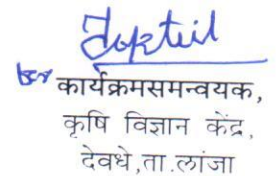 कार्यक्रमसमन्वयक,
कृषि विज्ञान केंद्र,
देवधे,ता.लांजा